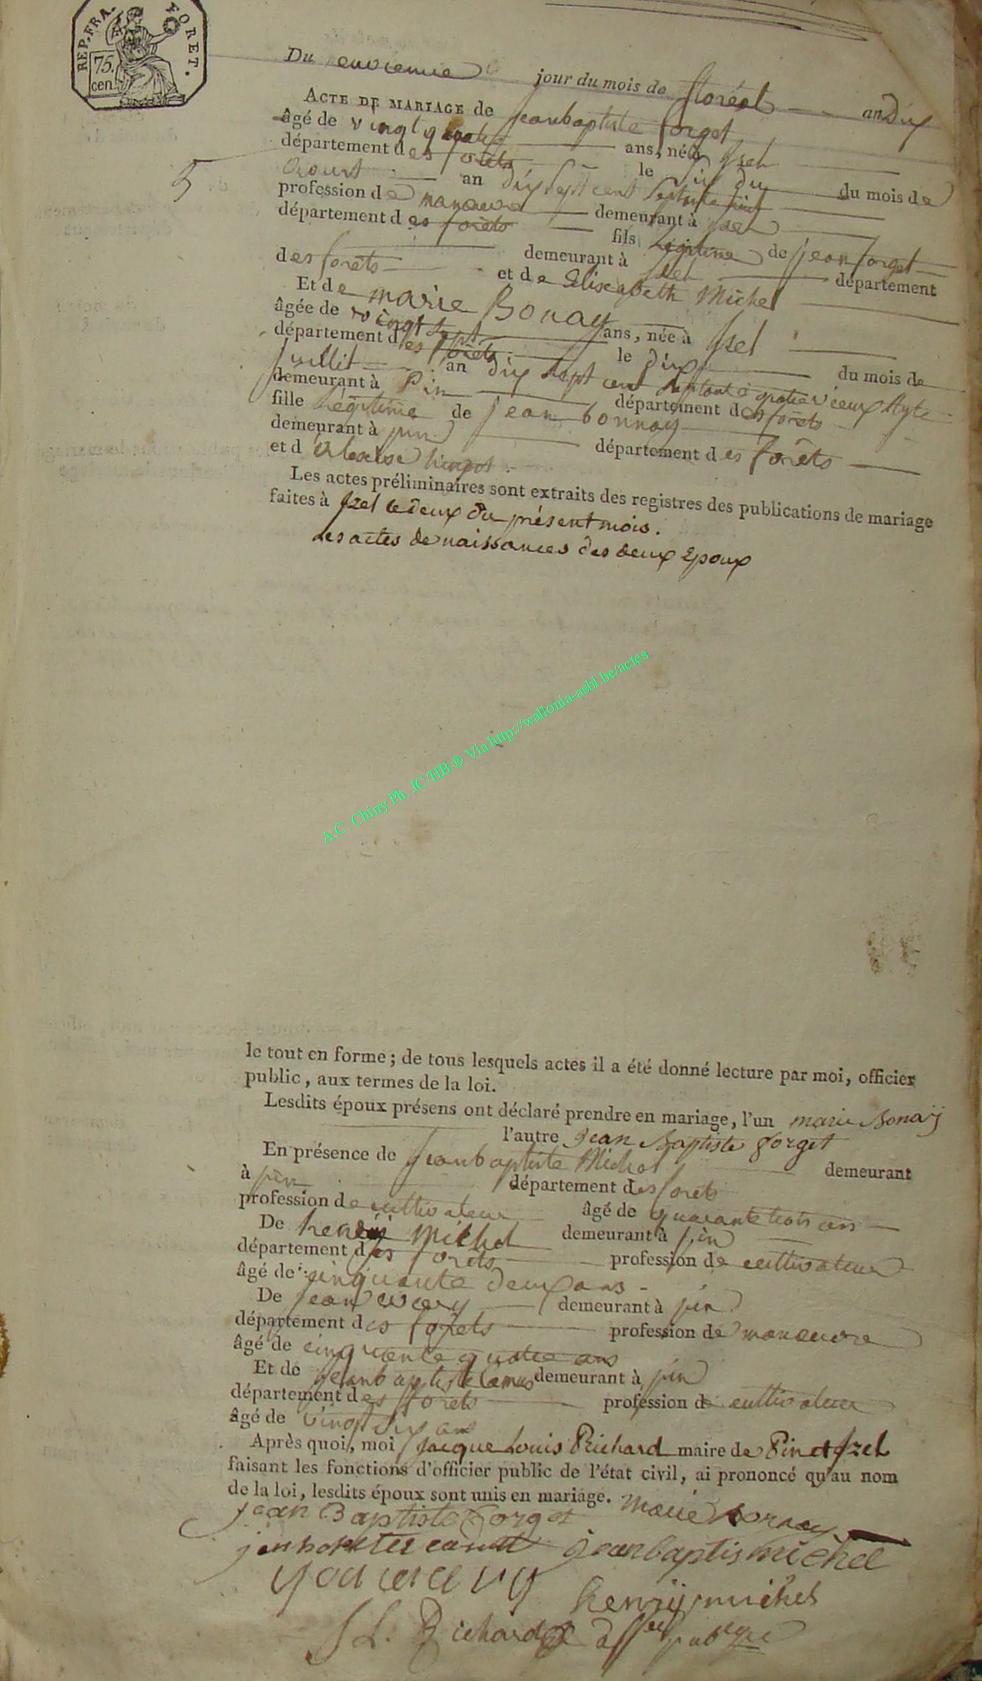 REP. FRA. FORET.
75. cen.
Du onzieme jour du mois de floréal an Dix
5
ACTE DE MARIAGE de jeanbaptiste forget
âgé de vingt quatre ans, né à Jzel
département des forêts le Six du mois de
Aoust an dix Sept cent Septante
profession de manœuvre demeurant à Jzel
département des forêts fils légitime de jean forget
demeurant à Jzel département
des forêts et de Elisabeth Michel
Et de marie Bonay
âgée de vingt sept ans, née à Jzel
département des forêts le dix du mois de
juillet an dix Sept cent Septante quatre vieux style
demeurant à Pin département des forêts
fille légitime de jean bonnay
demeurant à pin département des forêts
et d
Les actes préliminaires sont extraits des registres des publications de mariage
faites à Jzel le deux du présent mois.
Les actes de naissances des deux Epoux
A.C. Chiny Ph. JC HB @ Via http://wallonia-asbl.be/actes
le tout en forme; de tous lesquels actes il a été donné lecture par moi, officier
public, aux termes de la loi.
Lesdits époux présens ont déclaré prendre en mariage, l'un marie Bonay
l'autre Jean Baptiste forget
En présence de jeanbaptiste Michel demeurant
à pin département des forets
profession de cultivateur âgé de quarante trois ans
De henrÿ Michel demeurant à pin
département des forets profession de cultivateur
âgé de cinquante deux ans
De jean wery demeurant à pin
département des forets profession de manœuvre
âgé de cinquente quatre ans
Et de jeanbaptiste Camus demeurant à pin
département des forets profession de cultivateur
âgé de vingt six ans
Après quoi, moi Jacque Louis Richard maire de Pin et Jzel
faisant les fonctions d'officier public de l'état civil, ai prononcé qu'au nom
de la loi, lesdits époux sont unis en mariage.
jean Baptiste forget marie bonnay
jeanbaptis michel
henrij michel
J L. Richard